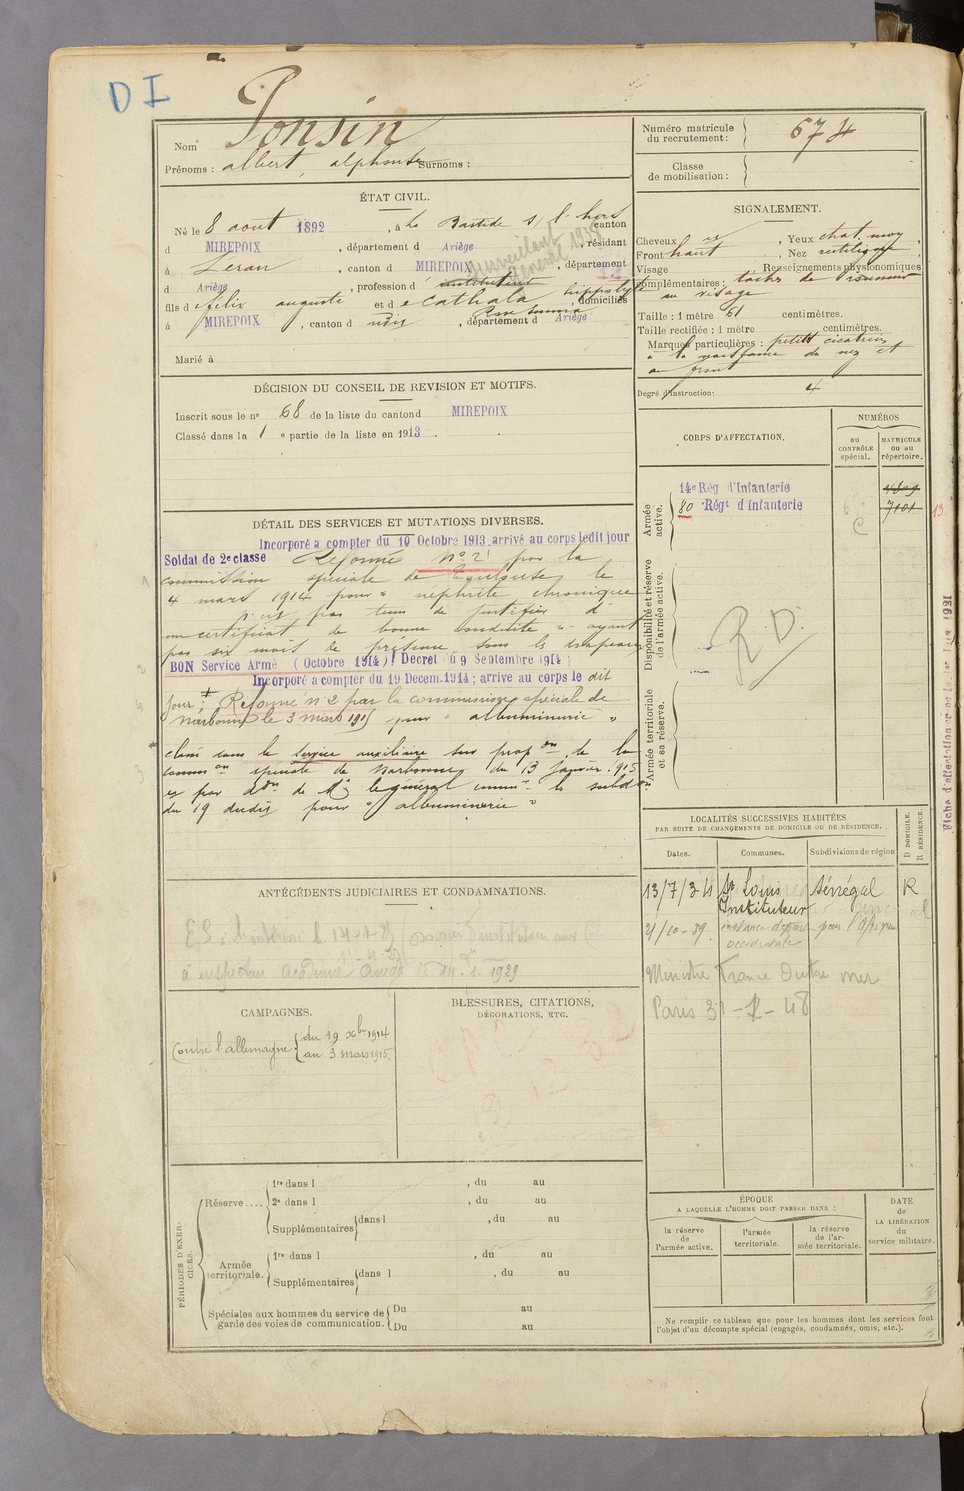 DI
Nom Ponsin
Prénoms : albert, alphonse Surnoms :
Numéro matricule du recrutement : 674
Classe de mobilisation :
ÉTAT CIVIL.
Né le 8 aout 1892, à La Bastide s/ l'hers canton
d MIREPOIX, département d Ariège, résidant
à Léran, canton d MIREPOIX, département
d Ariège, profession d' instituteur
surveillant général 1938
fils d e félix auguste et d e Cathala hippolyte, domiciliés
à MIREPOIX, canton d udis, département d Ariège
Marié à
SIGNALEMENT.
Cheveux, Yeux chat. moy,
Front haut, Nez rectiligne,
Visage Renseignements physionomiques
complémentaires : taches de rousseur
au visage
Taille : 1 mètre 61 centimètres.
Taille rectifiée : 1 mètre centimètres.
Marques particulières : petite cicatrice
à la naissance du nez et
au front
Degré d'instruction : 4
DÉCISION DU CONSEIL DE REVISION ET MOTIFS.
Inscrit sous le n° 68 de la liste du canton d MIREPOIX
Classé dans la 1 e partie de la liste en 1913.
CORPS D'AFFECTATION.
NUMÉROS
au CONTRÔLE spécial.
MATRICULE ou au répertoire.
Armée active.
14e Rég d'Infanterie 4809
80 Régt d'Infanterie 7101
13
Disponibilité et réserve de l'armée active.
R.D.
Armée territoriale et sa réserve.
DÉTAIL DES SERVICES ET MUTATIONS DIVERSES.
Incorporé a compter du 10 Octobre 1913, arrivé au corps ledit jour
Soldat de 2e classe Réformé n° 2 par la
commission spéciale de Toulouse le
4 mars 1914 pour " nephrite chronique
n'est pas tenu de justifier d'
un certificat de bonne conduite " ayant
pas six mois de présence sous les drapeaux
BON Service Armé (Octobre 1914)! Decret du 9 Septembre 1914
Incorporé a compter du 19 Decem. 1914 ; arrivé au corps le dit
jour ; Réformé n° 2 par la commission spéciale de
Narbonne le 3 mars 1915 pour " albuminurie "
classé dans le service auxiliaire sur propon de la
common spéciale de Narbonne du 13 janvier 1915
et par don de Mr le général commt la subdon
du 19 dudit pour " albuminerie "
LOCALITÉS SUCCESSIVES HABITÉES
PAR SUITE DE CHANGEMENTS DE DOMICILE OU DE RÉSIDENCE.
Dates. Communes. Subdivisions de région
D DOMICILE. R RÉSIDENCE.
13/7/34 St Louis Sénégal R
Instituteur
21/10-39 instance départ pour l'Afrique
occidentale
Ministre France Outre mer
Paris 31-
ANTÉCÉDENTS JUDICIAIRES ET CONDAMNATIONS.
à inspection académie Ariège 1929
CAMPAGNES.
Contre l'allemagne { du 19 xbre 1914
au 3 mars 1915.
BLESSURES, CITATIONS,
DÉCORATIONS, ETC.
PÉRIODES D'EXERCICES.
Réserve.... 1re dans l , du au
2e dans l , du au
Supplémentaires dans l , du au
Armée territoriale. 1re dans l , du au
Supplémentaires dans l , du au
Spéciales aux hommes du service de Du au
garde des voies de communication. Du au
ÉPOQUE
A LAQUELLE L'HOMME DOIT PASSER DANS :
la réserve de l'armée active.
l'armée territoriale.
la réserve de l'armée territoriale.
DATE de LA LIBÉRATION du service militaire.
Ne remplir ce tableau que pour les hommes dont les services font
l'objet d'un décompte spécial (engagés, condamnés, omis, etc.).